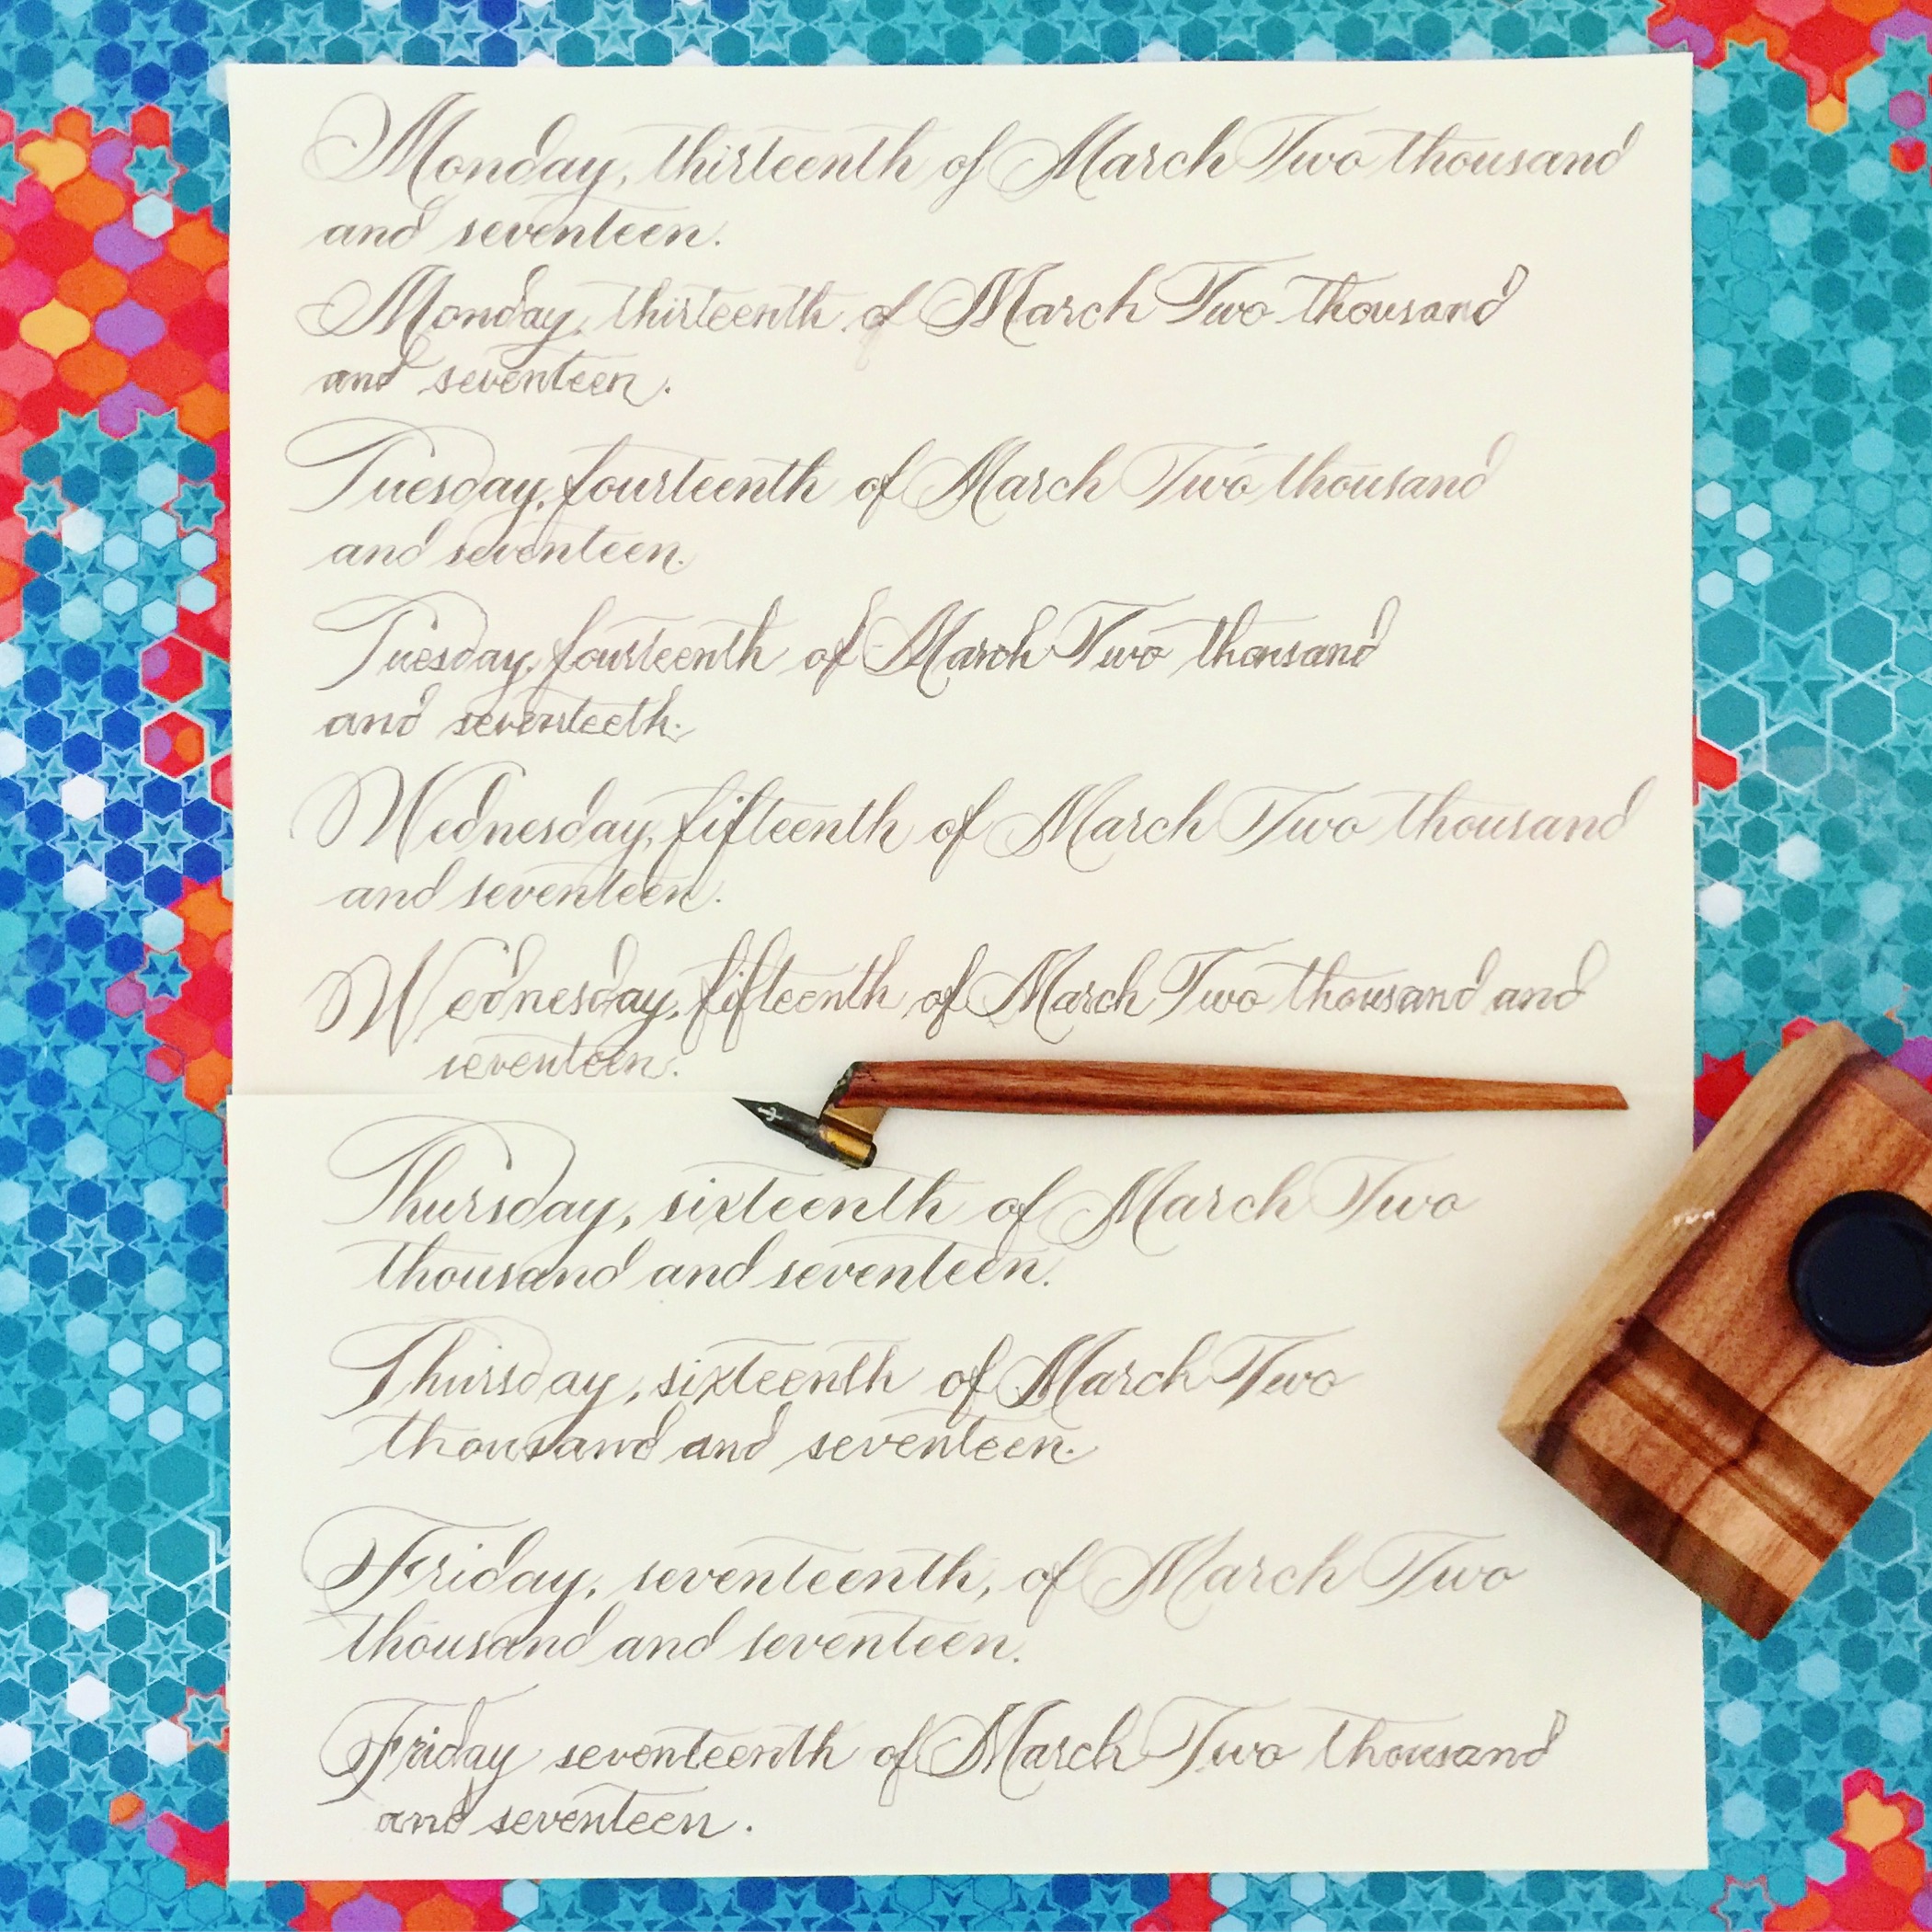 Monday, thirteenth of March Two thousand
and seventeen.
Monday, thirteenth of March Two thousand
and seventeen.
Tuesday, fourteenth of March Two thousand
and seventeen.
Tuesday, fourteenth of March Two thousand
and seventeeth.
Wednesday, fifteenth of March Two thousand
and seventeen.
Wednesday, fifteenth of March Two thousand and
seventeen.
Thursday, sixteenth of March Two
thousand and seventeen.
Thursday, sixteenth of March Two
thousand and seventeen.
Friday, seventeenth, of March Two
thousand and seventeen.
Friday seventeenth of March Two thousand
and seventeen.